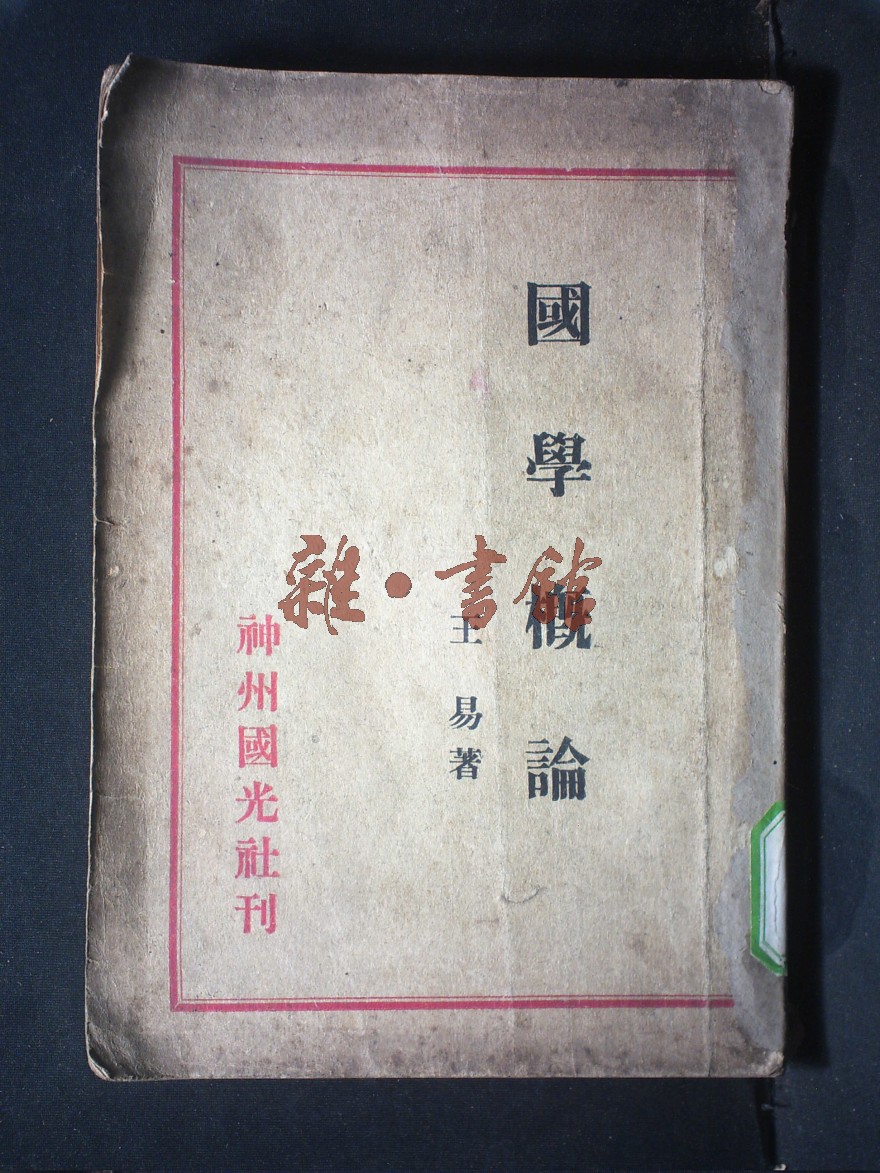 國學概論
王易著
神州國光社刊
雜·書館